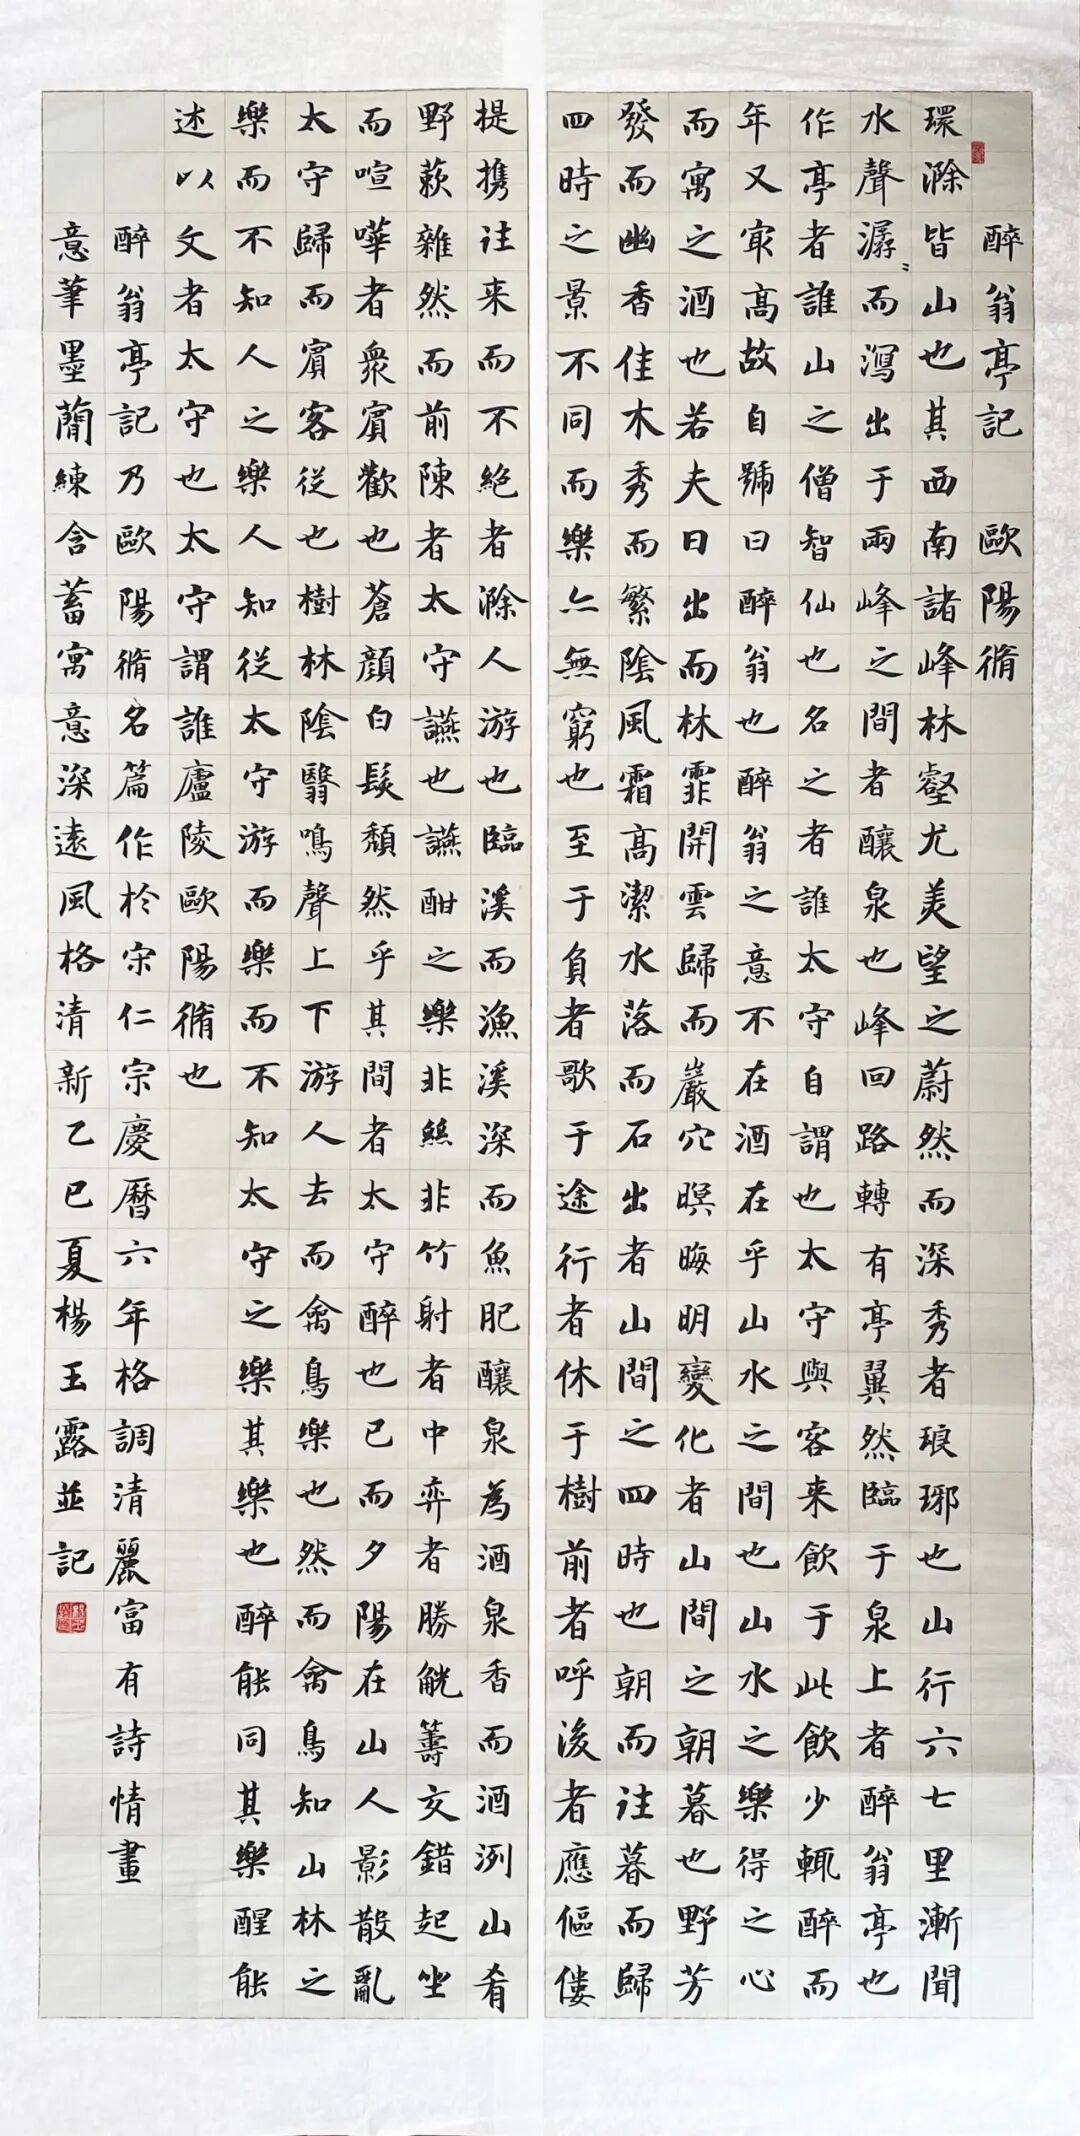 醉翁亭記 歐陽脩
環滁皆山也其西南諸峰林壑尤美望之蔚然而深秀者琅琊也山行六七里漸聞
水聲潺〻而瀉出于兩峰之間者釀泉也峰回路轉有亭翼然臨于泉上者醉翁亭也
作亭者誰山之僧智仙也名之者誰太守自謂也太守與客来飲于此飲少輒醉而
年又㝡高故自號曰醉翁也醉翁之意不在酒在乎山水之間也山水之樂得之心
而寓之酒也若夫日出而林霏開雲歸而巖穴暝晦明變化者山間之朝暮也野芳
發而幽香佳木秀而繁陰風霜高潔水落而石出者山間之四時也朝而往暮而歸
四時之景不同而樂亦無窮也至于負者歌于途行者休于樹前者呼後者應傴僂
提携往来而不絶者滁人游也臨溪而漁溪深而魚肥釀泉為酒泉香而酒洌山肴
野蔌雜然而前陳者太守讌也讌酣之樂非絲非竹射者中弈者勝觥籌交錯起坐
而喧嘩者衆賓歡也蒼顔白髮頽然乎其間者太守醉也已而夕陽在山人影散亂
太守歸而賓客從也樹林陰翳鳴聲上下游人去而禽鳥樂也然而禽鳥知山林之
樂而不知人之樂人知從太守游而樂而不知太守之樂其樂也醉能同其樂醒能
述以文者太守也太守謂誰廬陵歐陽脩也
醉翁亭記乃歐陽脩名篇作於宋仁宗慶曆六年格調清麗富有詩情畫
意筆墨簡練含蓄寓意深遠風格清新乙巳夏楊玉露並記